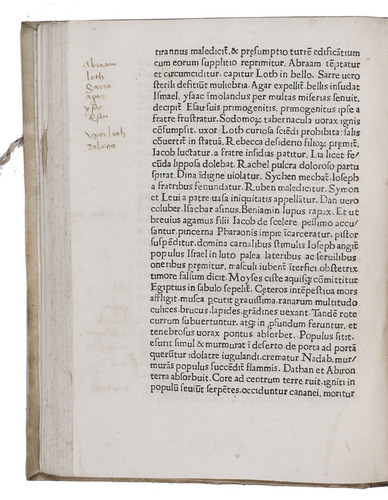 Abraam
loth
sarra
agar
ysac
esau
uxor loth
rabecca
tirannus maledicit. & presumptio turrē edificātium
cum eorum supplitio reprimitur. Abraam tēptatur
et circumciditur. capitur Loth in bello. Sarre uero
sterilis defitiūt muliebria. Agar expellit. bellis īsudat
Ismael. ysaac īmolandus per multas miserias senuit.
decipit Esau suis primogenitis. primogenitus ipse a
fratre frustratur. Sodomoȝ tabernacula uorax ignis
cōsumpsit. uxor Loth curiosa sciēdi prohibita: salis
cōuertit in statuā. Rebecca desideno filioȝ premit.
Iacob luctatur. a fratre insidias patitur. Lia licet fe-
cūda lipposa dolebat. Rachel pulcra doloroso partu
spirat. Dina īdigne uiolatur. Sychen mechat. Ioseph
a fratribus fenundatur. Ruben maledicitur. Symon
et Leui a patre uasa iniquitatis appellātur. Dan uero
coluber. Isachar asinus. Beniamin lupus rapax. Et ut
breuius agamus filii Iacob de scelere pessimo accu-
santur. pincerna Pharaonis impie īcarceratur. pistor
suspēditur. domina carnalibus stimulis Ioseph angit
populus Israel in luto palea lateribus ac seruilibus
oneribus premitur. masculi iubent īterfici. obstetrix
timore falsum dicit. Moyses ciste aquisqȝ cōmittitur
Egiptius in sabulo sepelit. Ceteros intēpestiua mors
affligit. musca pcutit grauissima. ranarum multitudo
culices. brucus. lapides. grādines uexant. Tandē rote
currum subuertuntur. atqȝ in pfundum feruntur. et
tenebrosus uorax pontus absorbet. Populus sitit.
esurit simul & murmurat ī deserto de porta ad portā
querūtur idolatre iugulandi. crematur Nadab. mur-
murās populus succēdit flammis. Dathan et Abiron
terra absorbuit. Core ad centrum terre ruit. igniti in
populū seuiūt serpētes. occiduntur cananei. moritur